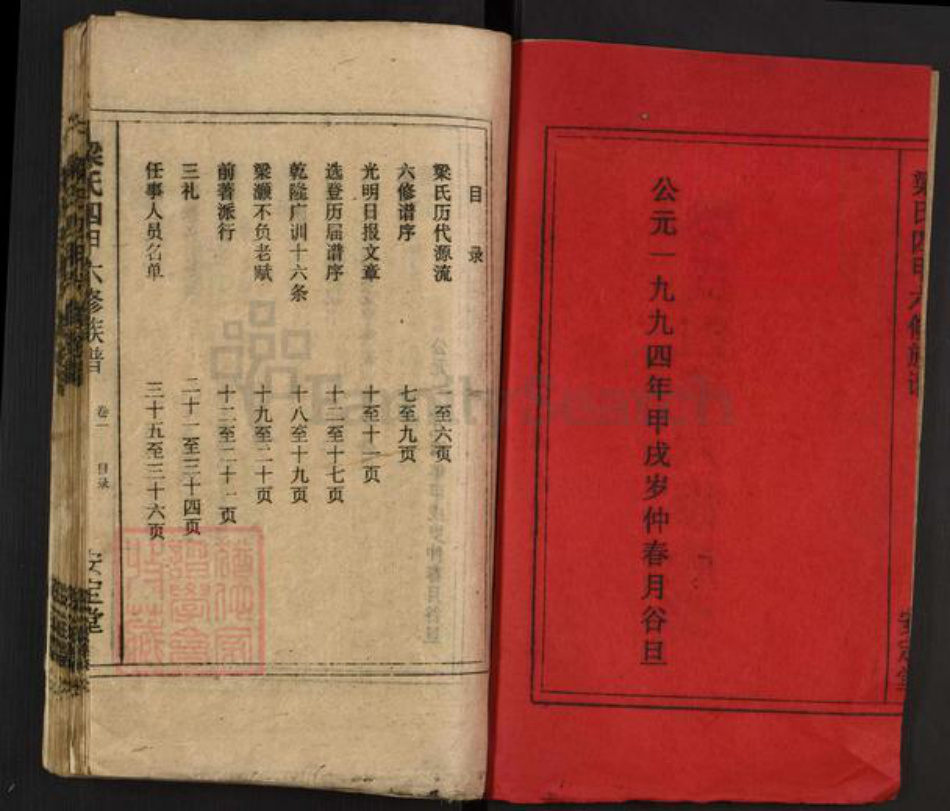 公元一九九四年甲戌岁仲春月谷旦
目录
梁氏历代源流 至六页
六修谱序 七至九页
光明日报文章 十至十一页
选登历届谱序 十二至十七页
乾隆广训十六条 十八至十九页
梁灏不负老赋 十九至二十页
前著派行 十二至二十一页
三礼 二十一至三十四页
任事人员名单 三十五至三十六页
梁氏四甲六修族谱
卷一
目录
安定堂